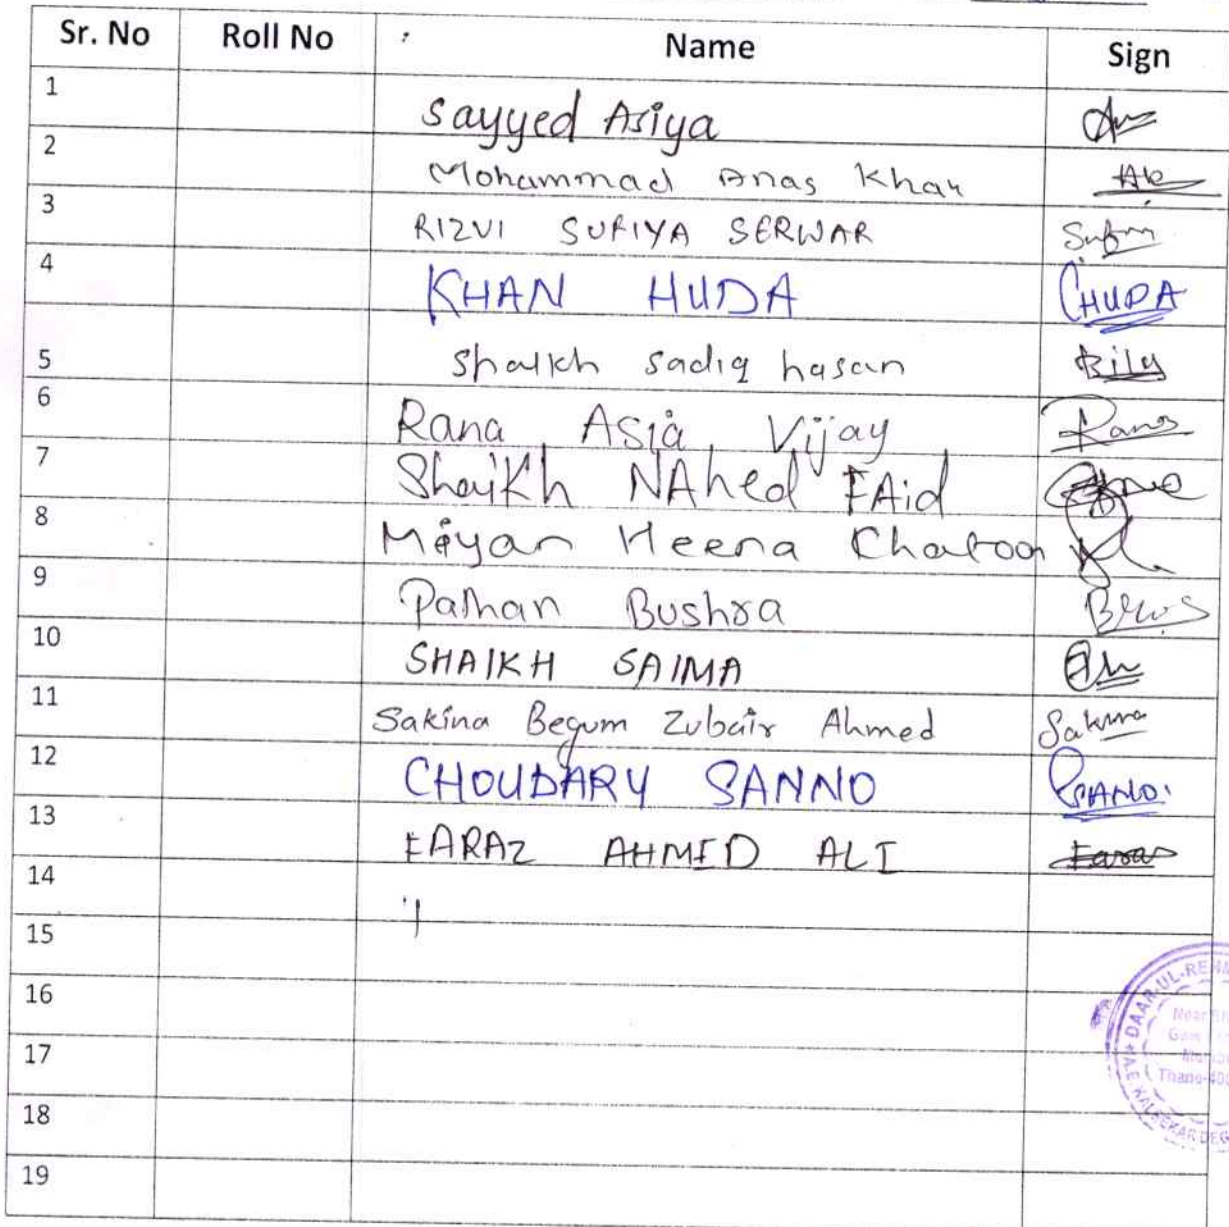 Sr. No Roll No Name Sign
1 Sayyed Asiya
2 Mohammad Anas Khan AK
3 RIZVI SUFIYA SERWAR Sufiya
4 KHAN HUDA HUDA
5 Shaikh sadiq hasan
6 Rana Asia Vijay Rana
7 Shaikh NAhed FAid
8 Meyan Heena Khatoon
9 Pathan Bushra Bus
10 SHAIKH SAIMA
11 Sakina Begum Zubair Ahmed Sakina
12 CHOUDARY SANNO SANNO
13 FARAZ AHMED ALI Faraz
14
15
16
17
18
19
DAAR-UL-REHM
Near
Thane-400
KALSEKAR DEG